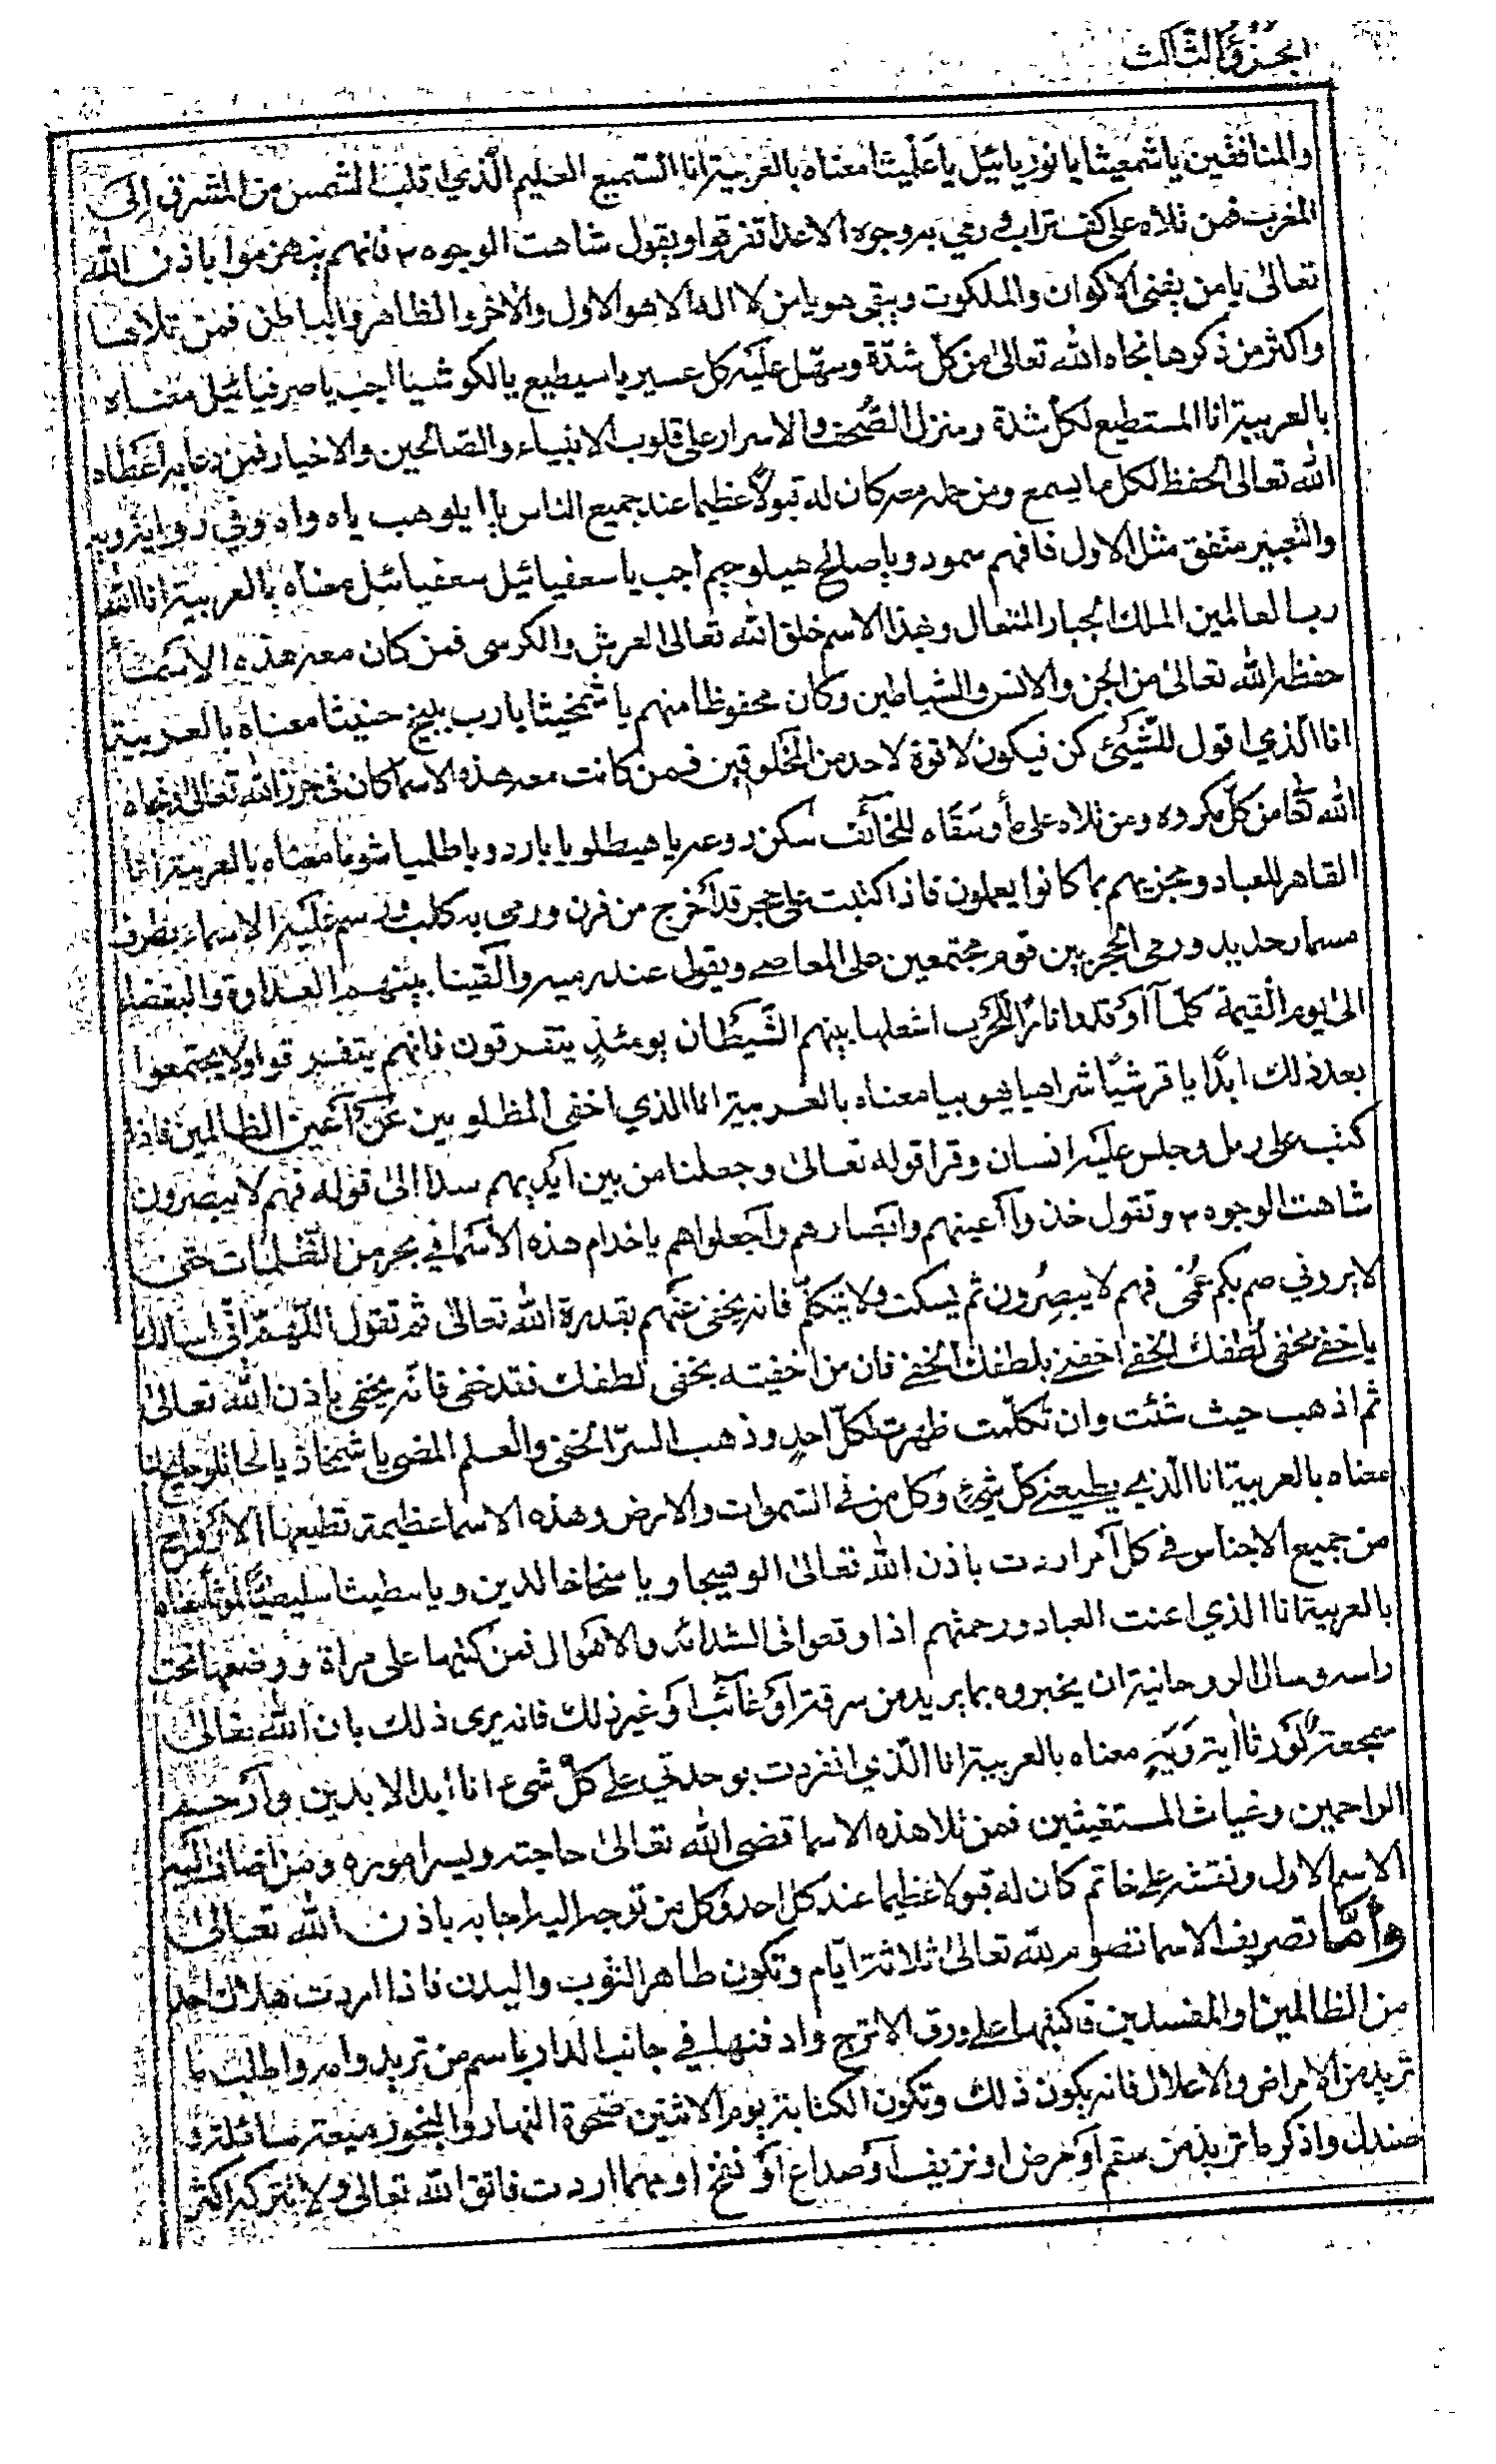 الجزؤ الثالث
والمنافقين ياشمعيثا يا نوزيائيل ياعليثا معناه بالعربية انا السميع العليم الذي اقلب الشمس من المشرق إلى
المغرب فمن تلاه على كف تراب ورمي به وجوه الاعدا تفرقوا ويقول شاهت الوجوه ٣ فانهم ينهزموا باذن الله
تعالى يا من يفنى الاكوان والملكوت ويبقى هو يا من لا اله الا هو الاول والاخر والظاهر والباطن فمن تلاها
واكثر من ذكرها نجاه الله تعالى من كل شدة وسهل عليه كل عسير يا سيطيع يا لكوشيا اجب يا صرفيائيل معناه
بالعربية انا المستطيع لكل شدة ومنزل الصحف والاسرار على قلوب الانبياء والصالحين والاخيار فمن دعا به اعطاه
الله تعالى الحفظ لكل ما يسمع ومن حمله معه كان له قبولا عظيما عند جميع الناس يا ايلوهب ياه واه وفي رواية ويه
والتعبير متفق مثل الاول فافهم سمودويا صالح هيلوجيم اجب يا سعفيائيل سعفيائيل معناه بالعربية انا الله
رب العالمين الملك الجبار المتعال وبهذا الاسم خلق الله تعالى العرش والكرسى فمن كان معه هذه الاسما
حفظه الله تعالى من الجن والانس والشياطين وكان محفوظا منهم يا شمخيثا يا رب بليخ حنيثا معناه بالعربية
انا الذي اقول للشيئ كن فيكون لا قوة لاحد من المخلوقين فمن كانت معه هذه الاسما كان فى حرز الله تعالى ونجاه
الله تعا من كل مكروه ومن تلاه على مأ وسقاه للخائف سكن روعه يا هيطلو يا باردو يا طلميا شوما معناه بالعربية انا
القاهر للعباد ومجزيهم بما كانوا يعملون فاذا كتبت على حجر قد اخرج من فرن ورمى به كلب وترسم عليه الاسماء بطرف
مسمار حديد ورمى الحجر بين قوم مجتمعين على المعاصي ويقول عند رميه والقينا بينهم العداوة والبغضا
الى يوم القيمة كلما اوقدوا نارا للحرب اشعلها بينهم الشيطان يومئذ يتفرقون فانهم يتفرقوا ولا يجتمعوا
بعد ذلك ابدا يا قرشيا شراهيا هوبيا معناه بالعربية انا الذي اخفى المظلوبين عن اعين الظالمين فاذا
كتب على رمل وجلس عليه انسان وقرا قوله تعالى وجعلنا من بين ايديهم سدا الى قوله فهم لا يبصرون
شاهت الوجوه ٣ وتقول خذوا اعينهم وابصارهم واجعلواهم يا خدام هذه الاسما في بحر من الظلمات حتى
لا يروني صم بكم عمى فهم لا يبصرون ثم يسكت ولا يتكلم فانه يخفى عنهم بقدرة الله تعالى ثم تقول اللهم انى اسالك
يا خفي بخفى لطفك الخفي اخفني بلطفك الخفي فان من اخفيته بخفى لطفك فقد خفى فانه يخفى باذن الله تعالى
ثم اذهب حيث شئت وان تكلمت ظهرت لكل احد وذهب السر الخفى والعلم المضى يا شمخاذ يا لحانلو
معناه بالعربية انا الذي يطيعني كل شيئ وكل من فى السموات والارض وهذه الاسما عظيمة تطيعها الارواح
من جميع الاجناس في كل امر اردت باذن الله تعالى الوهيجا ويا سخاخا لدين ويا سطيثا معناه
بالعربية انا الذي اعنت العباد ورحمتهم اذا وقعوا فى الشدائد والاهوال فمن كتبها على مراة ووضعها تحت
راسه وسال الروحانية ان يخبروه بما يريد من سرقة او غائب او غير ذلك فانه يرى ذلك باذن الله تعالى
معناه بالعربية انا الذي انفردت بوحدتي على كل شىء انا ابد الابدين وارحم
الراحمين وغياث المستغيثين فمن تلا هذه الاسما قضى الله تعالى حاجته ويسر اموره ومن اضاف اليه
الاسم الاول ونقشه على خاتم كان له قبولا عظيما عند كل احد وكل من توجه اليه اجابه باذن الله تعالى
وأما تصريف الاسما تصوم لله تعالى ثلاثة ايام وتكون طاهر الثوب والبدن فاذا اردت هلاك احد
من الظالمين او المفسدين فاكتبها على ورق الاترج وادفنها في جانب الدار باسم من تريد وامه واطلب ما
تريد من الامراض والاعلال فانه يكون ذلك وتكون الكتابة يوم الاثنين ضحوة النهار والبخور ميعة سائلة و
صندل واذكر ما تريد من سقم او مرض او نزيف او صداع او نفخ او مهما اردت فاتق الله تعالى ولا تتركه اكثر